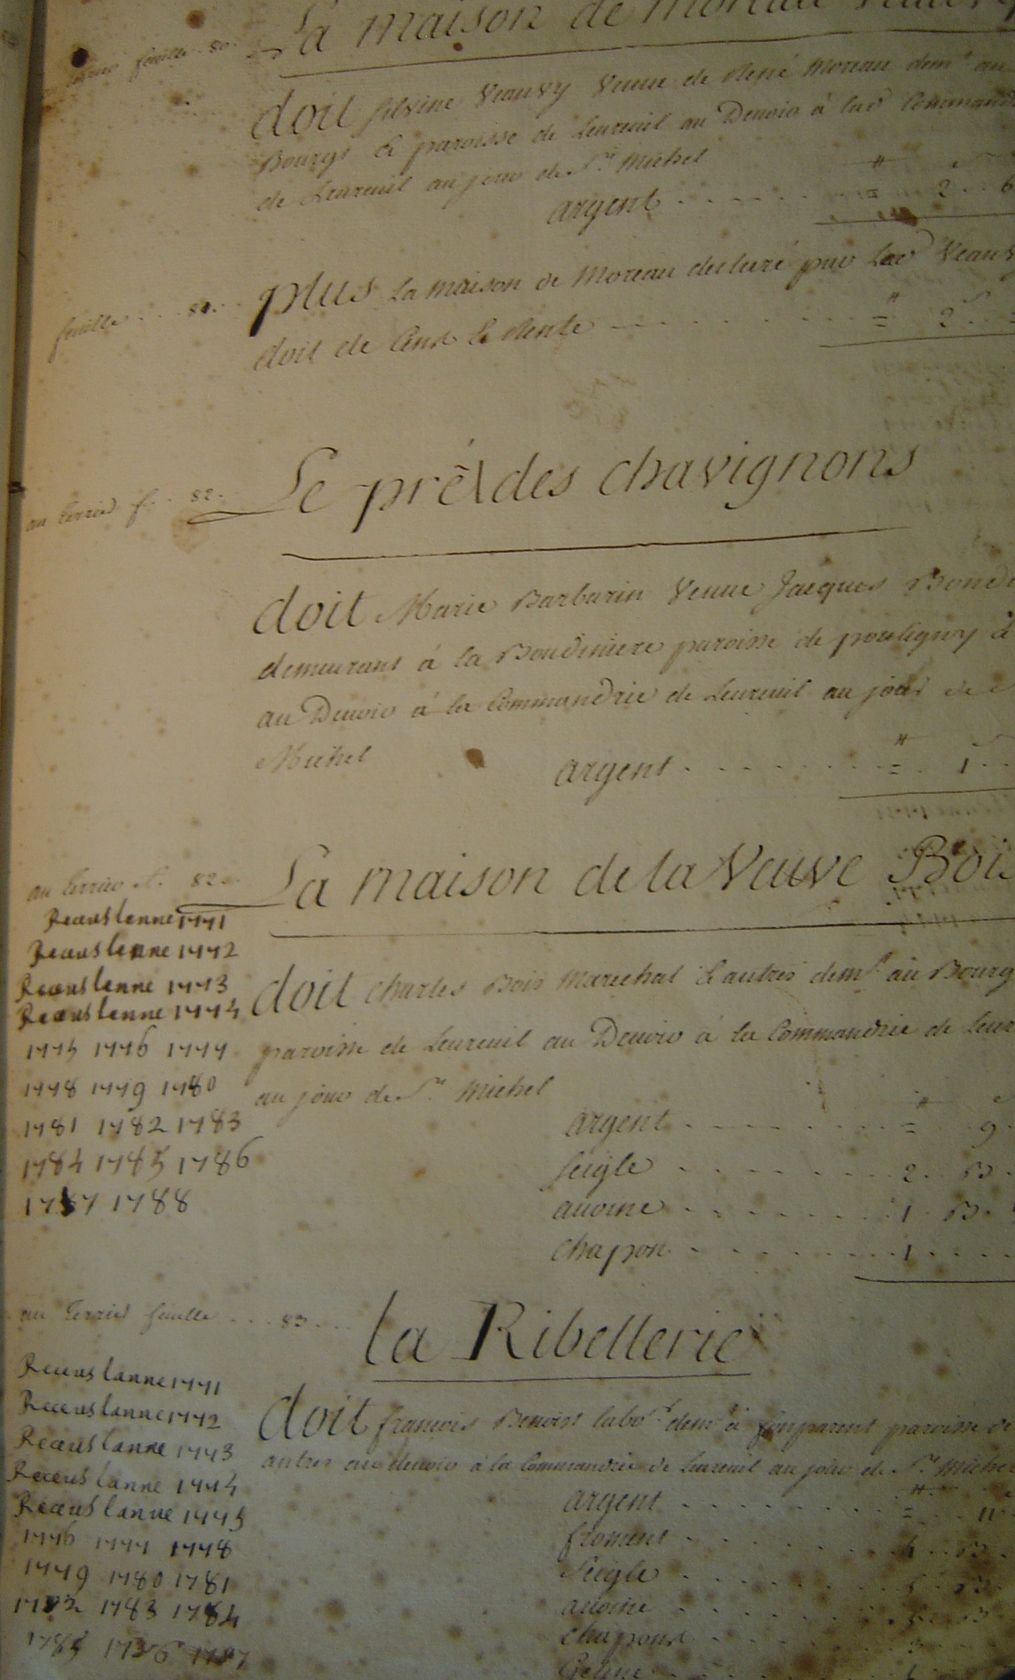 La maison de moreau
feuille 80
doit silvine Veauvy Veuve de René moreau demt. au
Bourg & paroisse de Leureuil au Devoir à lad Command
de Leureuil au jour de St. Michel
argent 2 6
feuille 81 plus la maison de moreau declaré par lad Veauv
doit de Cens & Rente 2
au terrier f. 82 Le pré des chavignons
doit Marie Barbarin Veuve Jacques Bond
demeurant à la Boudiniere paroisse de pouligny
au Devoir à la Commandrie de Leureuil au jour de
Michel
argent 1
au terrier f. 82 La maison de la Veuve Bois
Receus lanne 1771
Receus lanne 1772
Receus lanne 1773
Receus lanne 1774
1775 1776 1777
1778 1779 1780
1781 1782 1783
1784 1785 1786
1787 1788
doit charles Bois Marechal & autres demt. au Bourg
paroisse de Leureuil au Devoir à la Commandrie de Leur
au jour de St. Michel
argent = 9
seigle 2 B
avoine 1 B
chapon 1
au terrier feuille 83 la Ribellerie
Receus lanne 1771
Receus lanne 1772
Receus lanne 1773
Receus lanne 1774
Receus lanne 1775
1776 1777 1778
1779 1780 1781
1782 1783 1784
1785 1786 1787
doit françois Benoist labr. demt. à paroisse de
autres au devoir à la Commandrie de Leureuil au jour de St. Michel
argent = 11
froment B
seigle B
avoine B
chapons
Geline